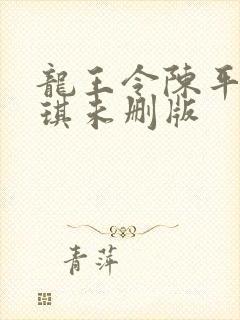 龍王令陳平
琪未删版
青萍